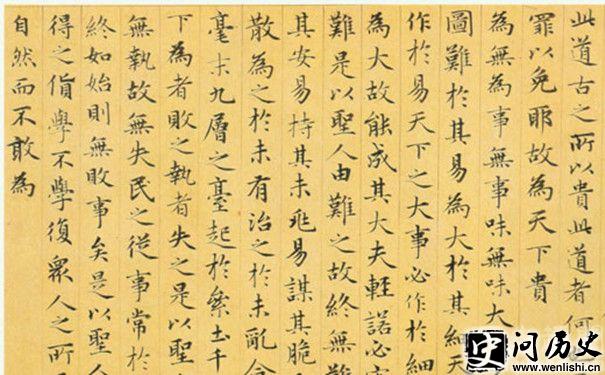 此道古之所以貴此道者何
罪以免耶故為天下貴
為無為事無事味無味大
圖難於其易為大於其細天
作於易天下之大事必作於細
為大故能成其大夫輕諾必
難是以聖人由難之故終無難
其安易持其未兆易謀其脆
散為之於未有治之於未亂合
毫末九層之臺起於累土千
下為者敗之執者失之是以聖
無執故無失民之從事常於
終如始則無敗事矣是以聖人
得之貨學不學復衆人之所
自然而不敢為
问历史
www.wenlishi.cn